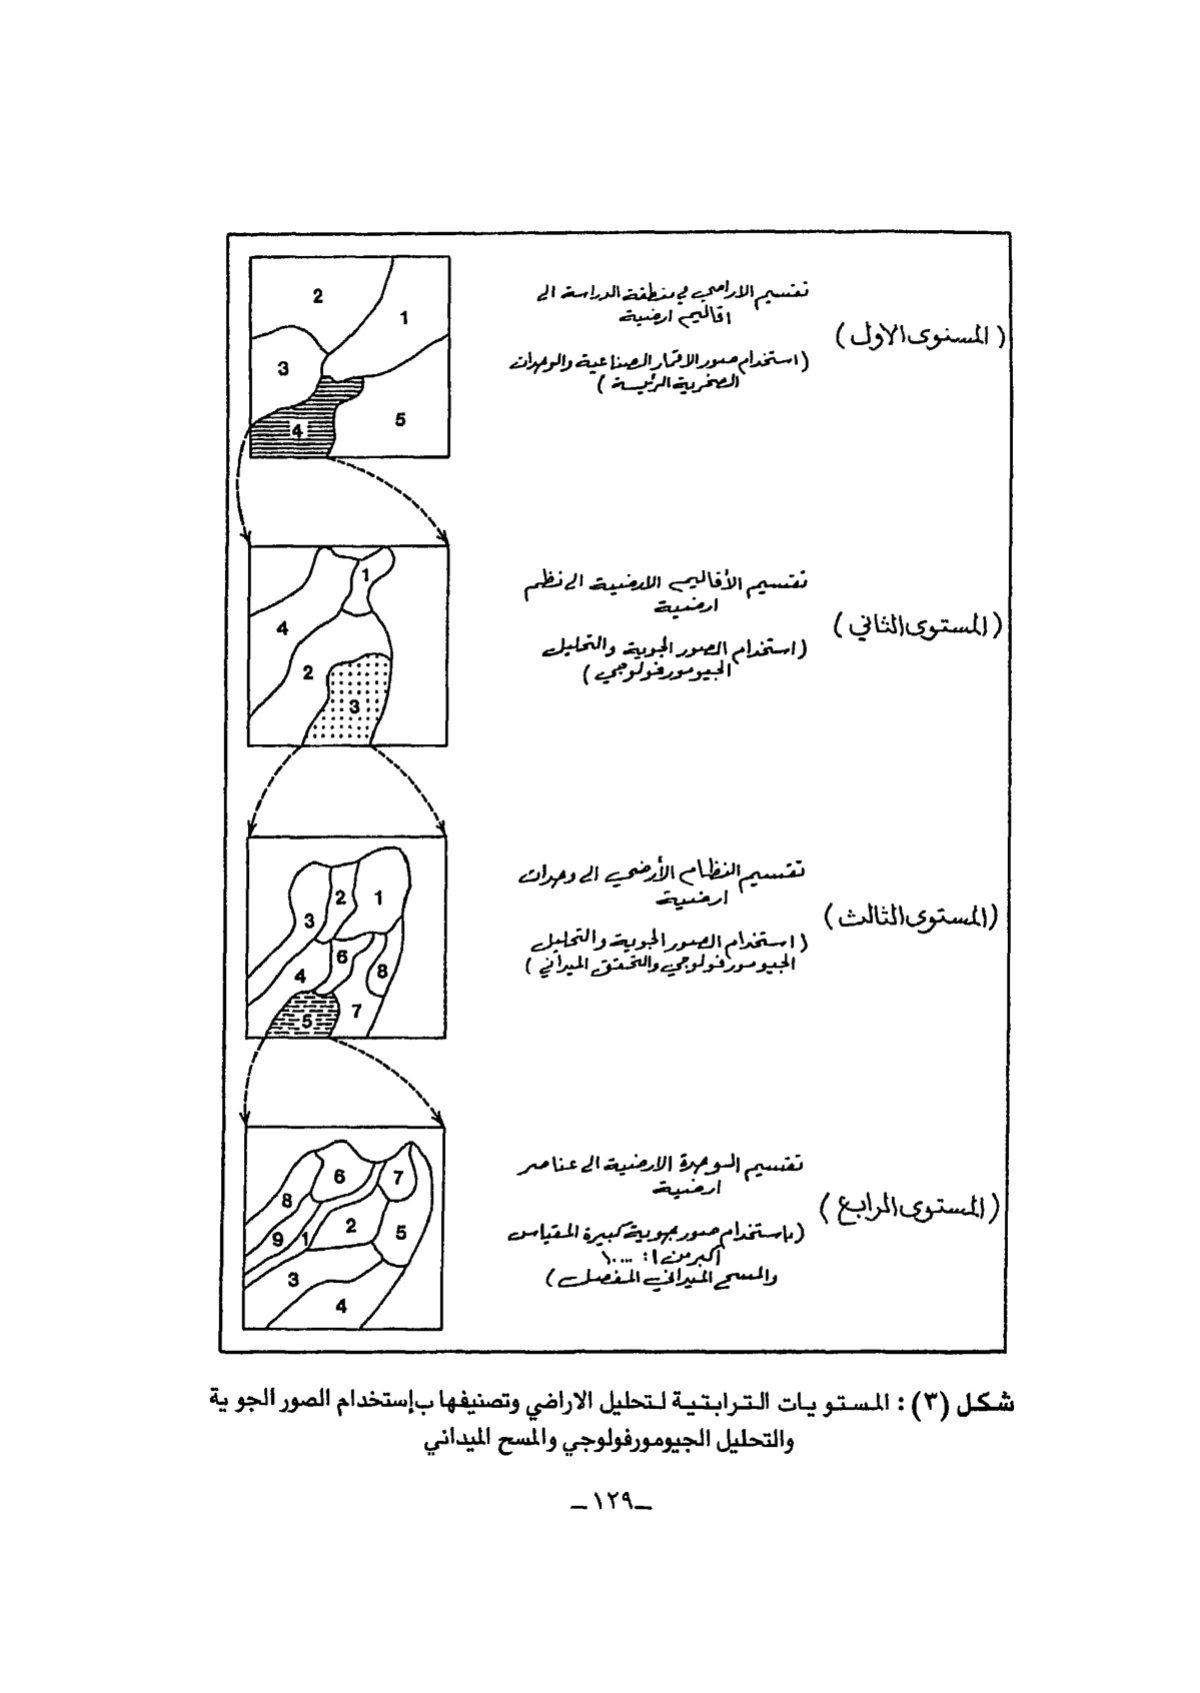 2
1
3
4
5
(المستوى الاول)
تقسيم الاراضي في منطقة الدراسة الى
اقاليم ارضية
(استخدام صور الاقمار الصناعية والوحدات
الصخرية الرئيسة)
1
4
2
3
(المستوى الثاني)
تقسيم الأقاليم الارضية الى نظم
ارضية
(استخدام الصور الجوية والتحليل
الجيومورفولوجي)
2
1
3
6
4
8
5
7
(المستوى الثالث)
تقسيم النظام الأرضي الى وحدات
ارضية
(استخدام الصور الجوية والتحليل
الجيومورفولوجي والتحقق الميداني)
6
7
8
2
9
1
5
3
4
(المستوى الرابع)
تقسيم الوحدة الارضية الى عناصر
ارضية
(باستخدام صور جوية كبيرة المقياس
أكبر من ١: ١٠٠٠٠
والمسح الميداني المفصل)
شكل (٣): المستويات الترابتية لتحليل الاراضي وتصنيفها بإستخدام الصور الجوية
والتحليل الجيومورفولوجي والمسح الميداني
ـ ١٢٩ ـ